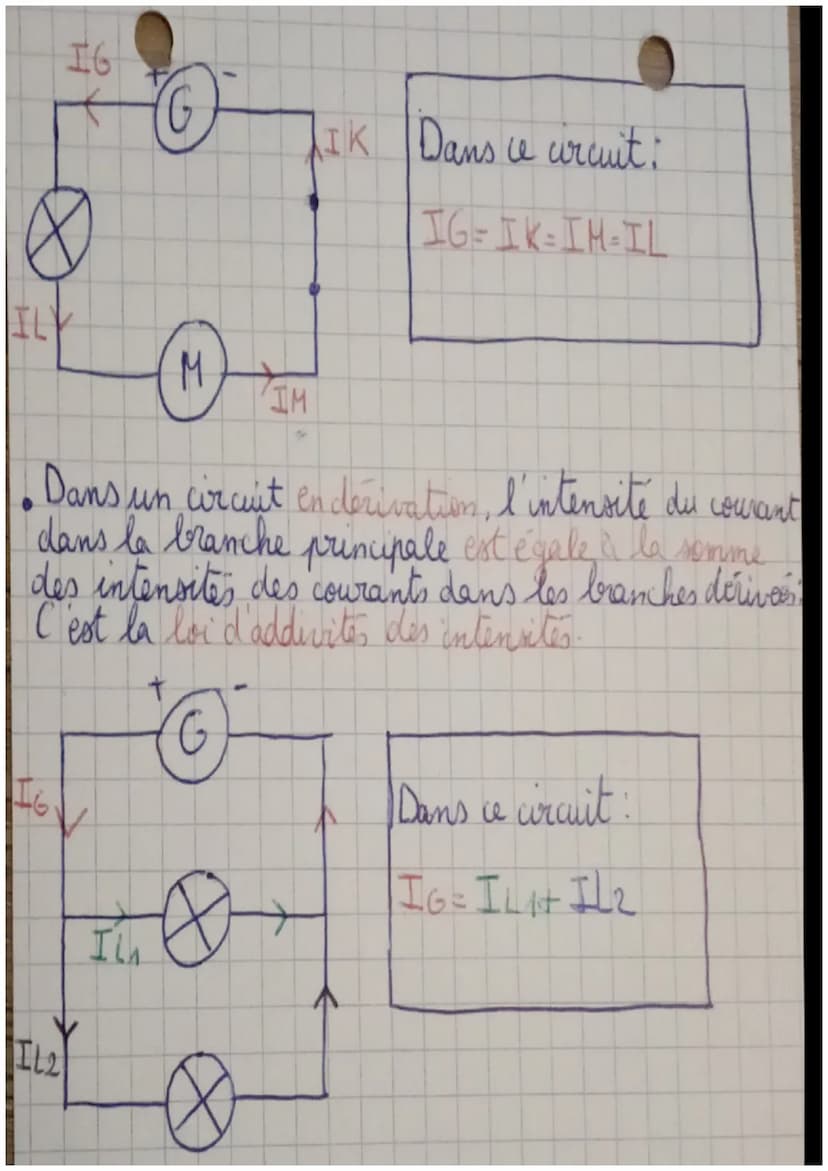 IG
+ -
G
IK
Dans ce circuit:
IG= IK= IM= IL
IL
M
IM
. Dans un circuit en dérivation, l'intensité du courant
dans la branche principale est égale à la somme
des intensités des courants dans les branches dérivées.
C'est la loi d'addivités des intensités.
+ -
G
IG
Dans ce circuit:
IG= IL1+ IL2
IL1
IL2